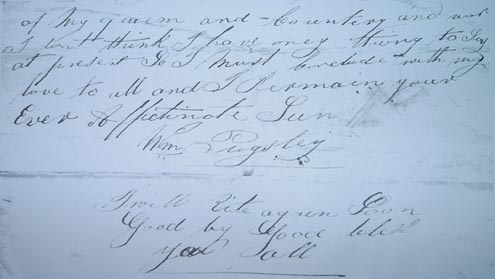 of my queen and Country and now
I Dont think I have oney thing to Say
at present So I must Conclude with my
love to all and I Remain your
Ever Affictinate Sun
Wm Pugsley
I will Rite agen Soon
Good by Good bless
you all